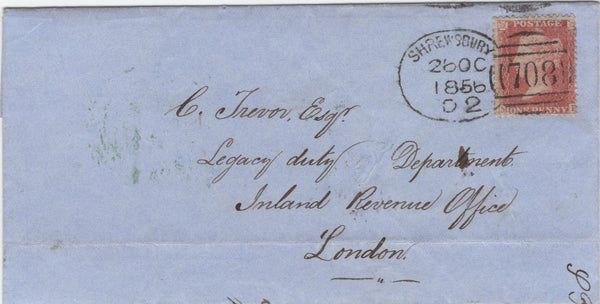 POSTAGE
SHREWSBURY
26OC
1856
O2
708
ONE PENNY
C. Trevor, Esqr.
Legacy duty Department
Inland Revenue Office
London.